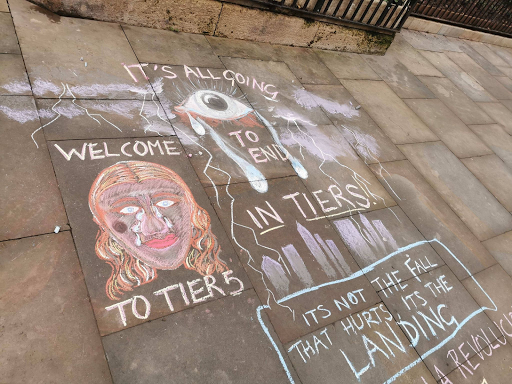 IT'S ALL GOING
TO
END
IN TIERS!
WELCOME...
TO TIER 5
ITS NOT THE FALL
THAT HURTS 'ITS THE
LANDING
A REVOLUCI